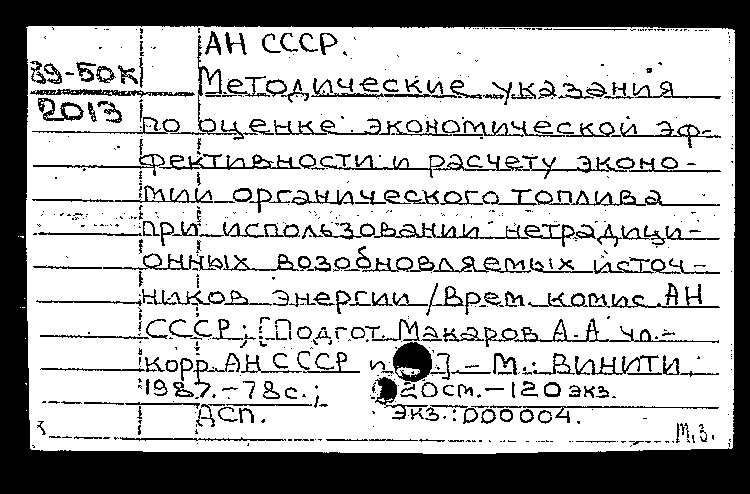 АН СССР.
89-50К Методические указания
2013 по оценке экономической эф-
фективности и расчету эконо-
мии органического топлива
при использовании нетрадици-
онных возобновляемых источ-
ников энергии /Врем. комис. АН
СССР; [Подгот. Макаров А.А чл.-
корр. АН СССР и ] - М.: ВИНИТИ,
1987. - 78 с.; 20 см. - 120 экз.
ДСП. Экз.: 000004.
М.З.